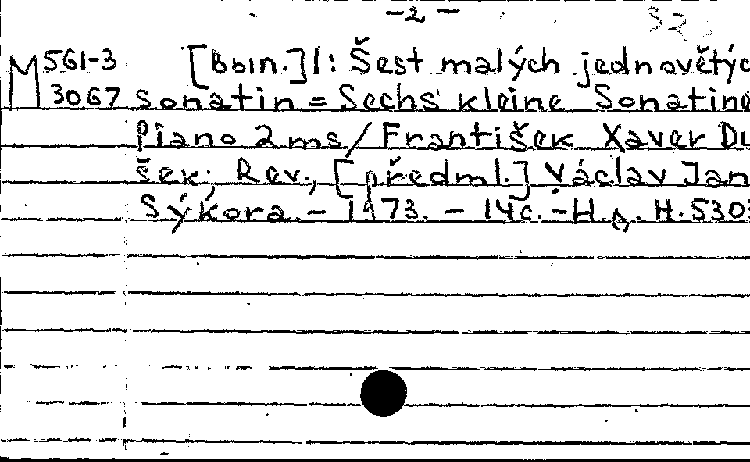 -2-
32
M 561-3 [Вып.]1: Šest malých jednovětýc
3067 sonatin = Sechs kleine Sonatine
Piano 2 ms / František Xaver Du
šek; Rev., [předml.] Václav Jan
Sýkora. - 1973. - 14c. - Н.д. H.5303